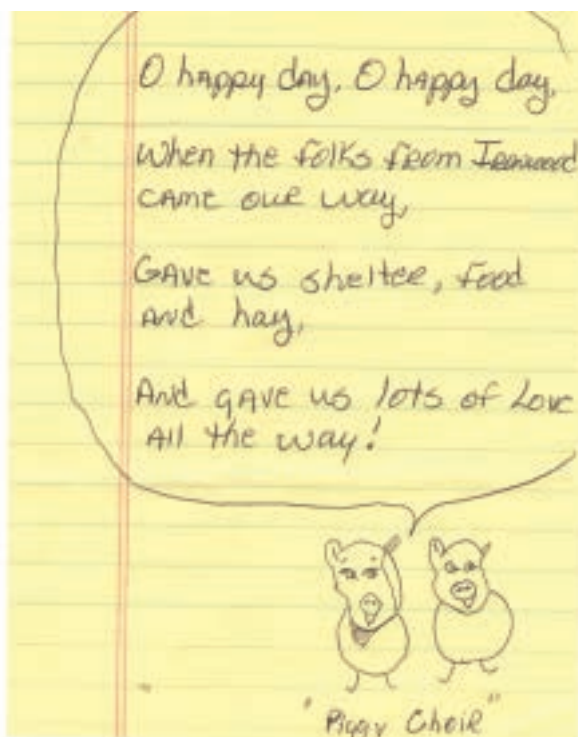 O happy day, O happy day,
When the folks from Ironwood
came our way,
Gave us shelter, food
and hay,
And gave us lots of Love
All the way!
"Piggy Choir"